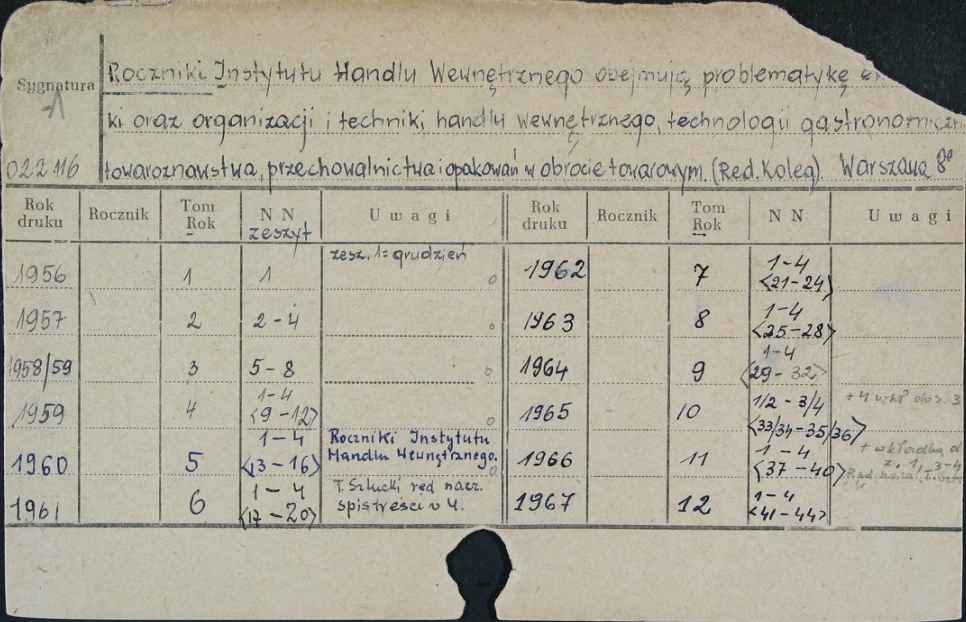 Sygnatura
A
022116
Roczniki Instytutu Handlu Wewnętrznego obejmują problematykę
ki oraz organizacji i techniki handlu wewnętrznego, technologii gastronomiczn
towaroznawstwa, przechowalnictwa i opakowań w obrocie towarowym. (Red. Koleg). Warszawa 8°
Rok druku Rocznik Tom Rok N N zeszyt Uwagi Rok druku Rocznik Tom Rok N N Uwagi
1956 1 1 zesz. 1 = grudzień
1957 2 2-4
1958/59 3 5-8
1959 4 1-4 <9-12>
1960 5 1-4 <13-16> Roczniki Instytutu Handlu Wewnętrznego.
1961 6 1-4 <17-20> T. Sztucki red nacz. spis treści v 4.
1962 7 1-4 <21-24>
1963 8 1-4 <25-28>
1964 9 1-4 <29-32>
1965 10 1/2-3/4 <33/34-35/36> + 4 do z. 3
1966 11 1-4 <37-40> + wkładka d z. 1, 3-4
1967 12 1-4 <41-44>